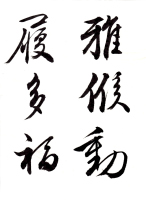 雅候動
履多福